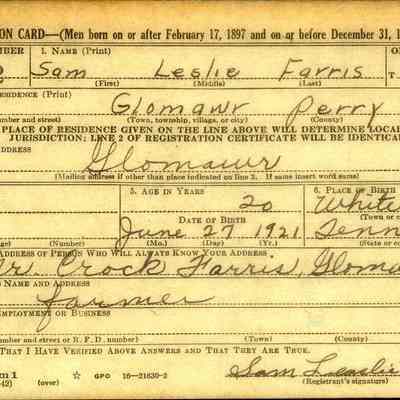 ON CARD—(Men born on or after February 17, 1897 and on or before December 31, 1
UMBER 1. NAME (Print) OR
Sam Leslie Farris T
(First) (Middle) (Last)
ESIDENCE (Print)
Glomawr Perry
umber and street) (Town, township, village, or city) (County)
PLACE OF RESIDENCE GIVEN ON THE LINE ABOVE WILL DETERMINE LOCA
JURISDICTION; LINE 2 OF REGISTRATION CERTIFICATE WILL BE IDENTICA
ADDRESS
Glomawr
(Mailing address if other than place indicated on line 2. If same insert word same)
5. AGE IN YEARS 6. PLACE OF BIRTH
20 White
DATE OF BIRTH (Town or co
June 27 1921 Tenn
ge) (Number) (Mo.) (Day) (Yr.) (State or co
ADDRESS OF PERSON WHO WILL ALWAYS KNOW YOUR ADDRESS
r. Crock Farris, Gloma
S NAME AND ADDRESS
farmer
MPLOYMENT OR BUSINESS
umber and street or R. F. D. number) (Town) (County)
THAT I HAVE VERIFIED ABOVE ANSWERS AND THAT THEY ARE TRUE.
rm 1
42) (over) ☆ GPO 16—21630-2 Sam Leaslie
(Registrant's signature)